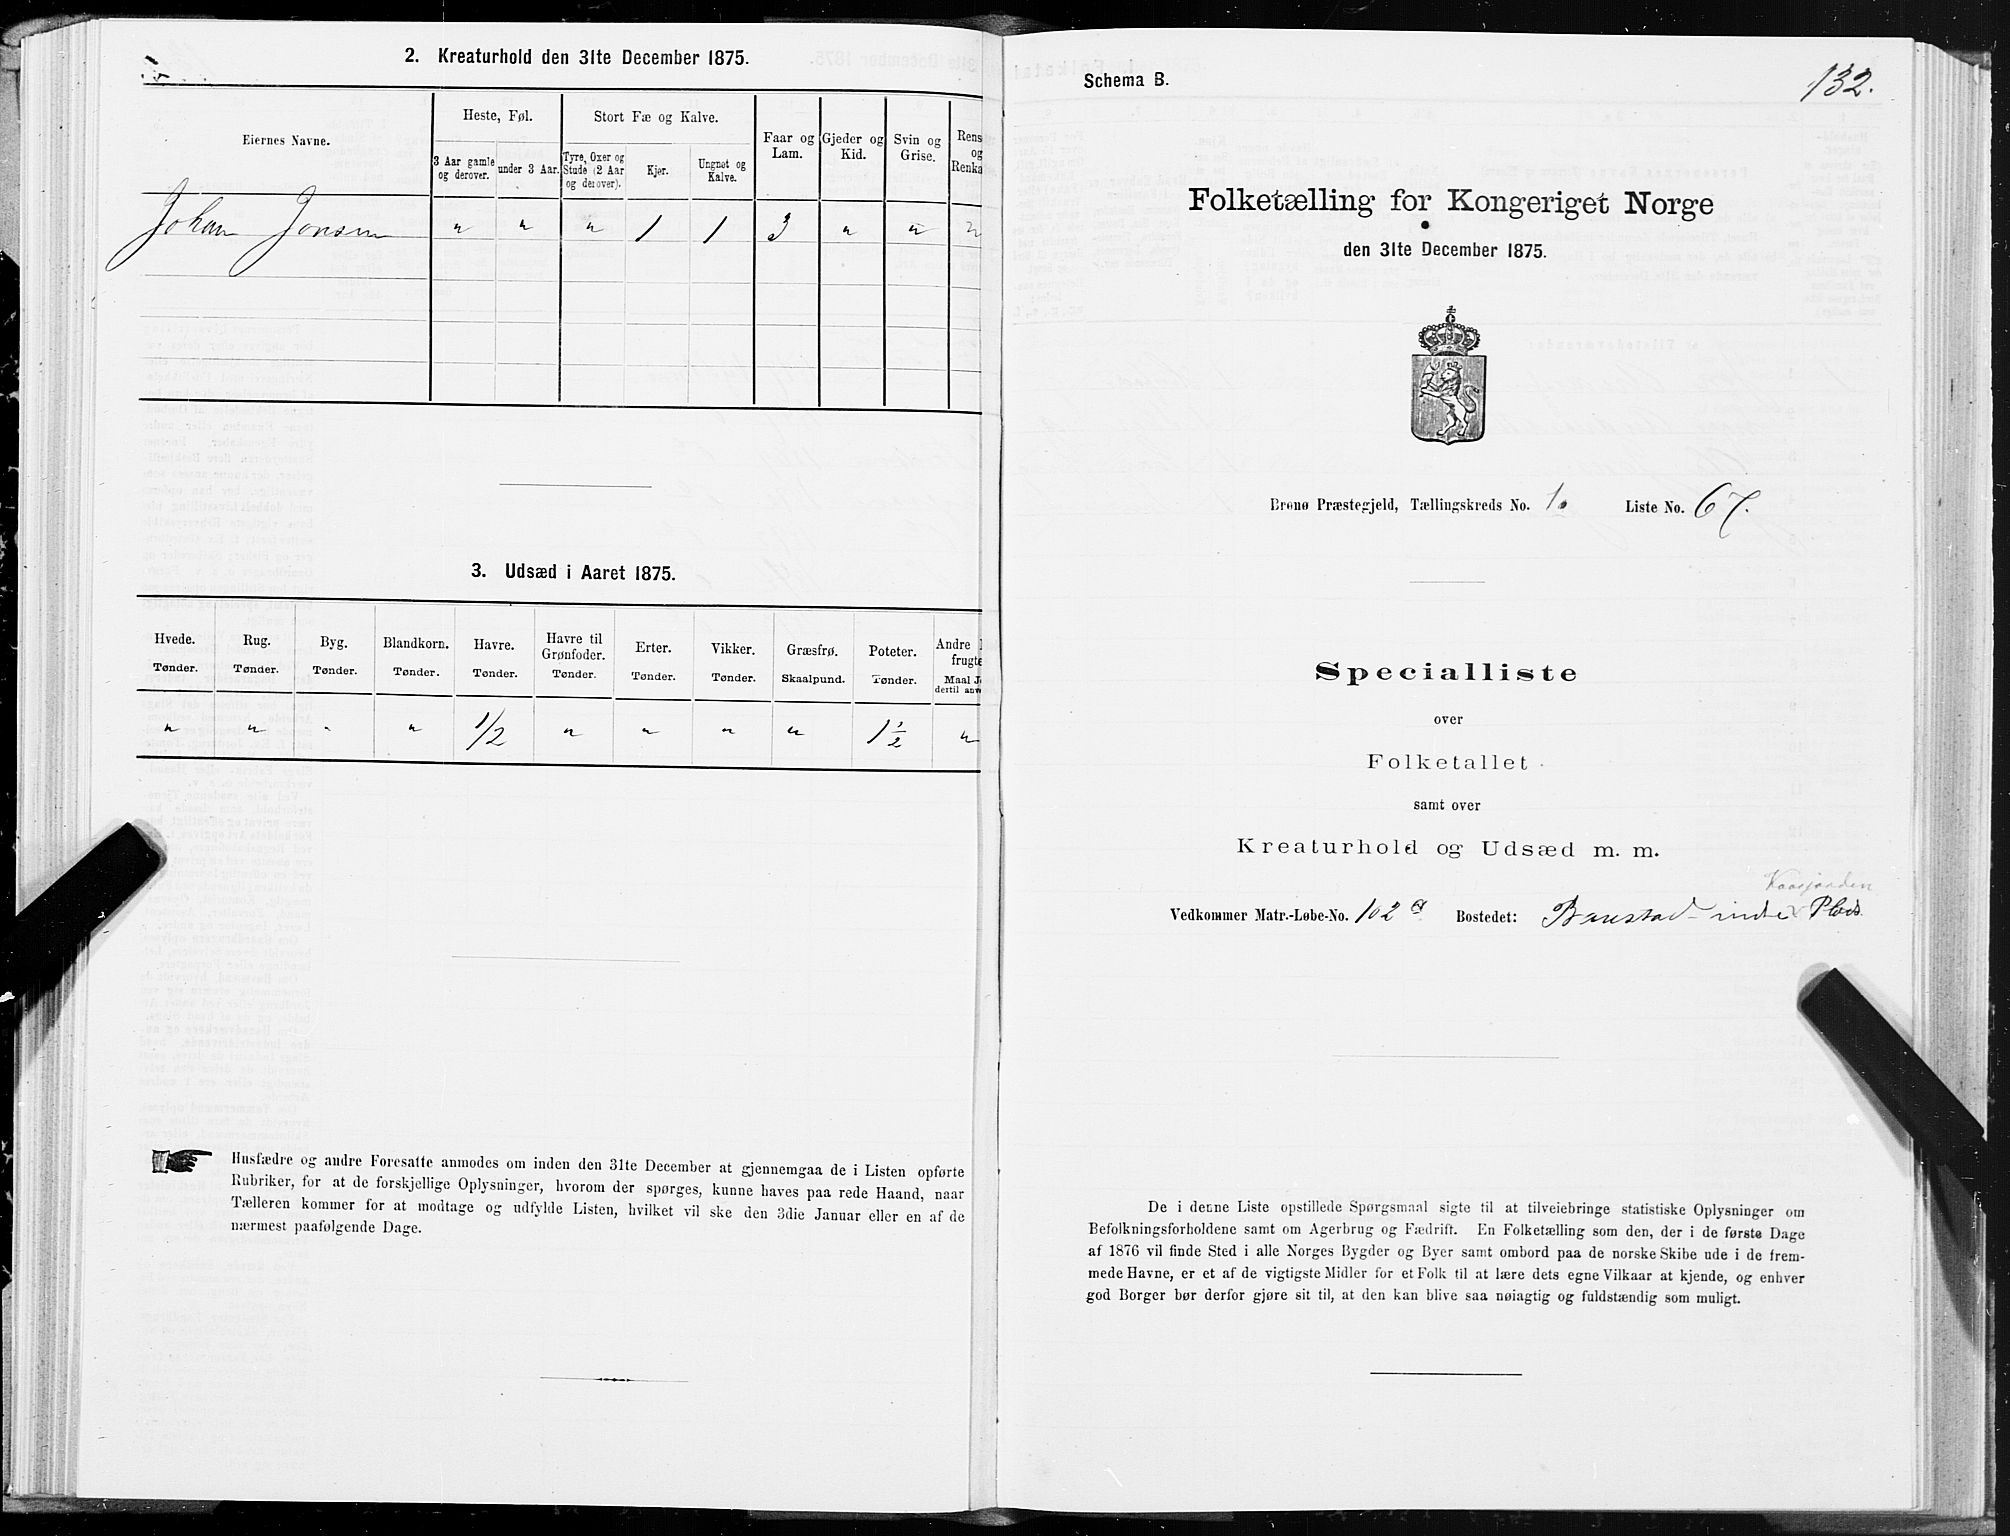 2. Kreaturhold den 31te December 1875.
Eiernes Navne.
Heste, Føl.
Stort Fæ og Kalve.
Faar og Lam.
Gjeder og Kid.
Svin og Grise.
Rens
og
Renka
3 Aar gamle og derover.
under 3 Aar.
Tyre, Oxer og Stude (2 Aar og derover).
Kjer.
Ungnøt og Kalve.
Johan Jonsen " " " 1 1 3 " " "
3. Udsæd i Aaret 1875.
Hvede. Rug. Byg. Blandkorn. Havre. Havre til Grønfoder. Erter. Vikker. Græsfrø. Poteter. Andre
frugte
Tønder. Tønder. Tønder. Tønder. Tønder. Tønder. Tønder. Tønder. Skaalpund. Tønder. Maal J
dertil anv
" " " " 1/2 " " " " 1 1/2 "
Husfædre og andre Foresatte anmodes om inden den 31te December at gjennemgaa de i Listen opførte
Rubriker, for at de forskjellige Oplysninger, hvorom der spørges, kunne haves paa rede Haand, naar
Tælleren kommer for at modtage og udfylde Listen, hvilket vil ske den 3die Januar eller en af de
nærmest paafølgende Dage.
Schema B.
132.
Folketælling for Kongeriget Norge
den 31te December 1875.
Brønø Præstegjeld, Tællingskreds No. 10 Liste No. 67.
Specialliste
over
Folketallet
samt over
Kreaturhold og Udsæd m. m.
Vedkommer Matr.-Løbe-No. 102 a Bostedet: indre Plads
De i denne Liste opstillede Spørgsmaal sigte til at tilveiebringe statistiske Oplysninger om
Befolkningsforholdene samt om Agerbrug og Fædrift. En Folketælling som den, der i de første Dage
af 1876 vil finde Sted i alle Norges Bygder og Byer samt ombord paa de norske Skibe ude i de frem-
mede Havne, er et af de vigtigste Midler for et Folk til at lære dets egne Vilkaar at kjende, og enhver
god Borger bør derfor gjøre sit til, at den kan blive saa nøiagtig og fuldstændig som muligt.